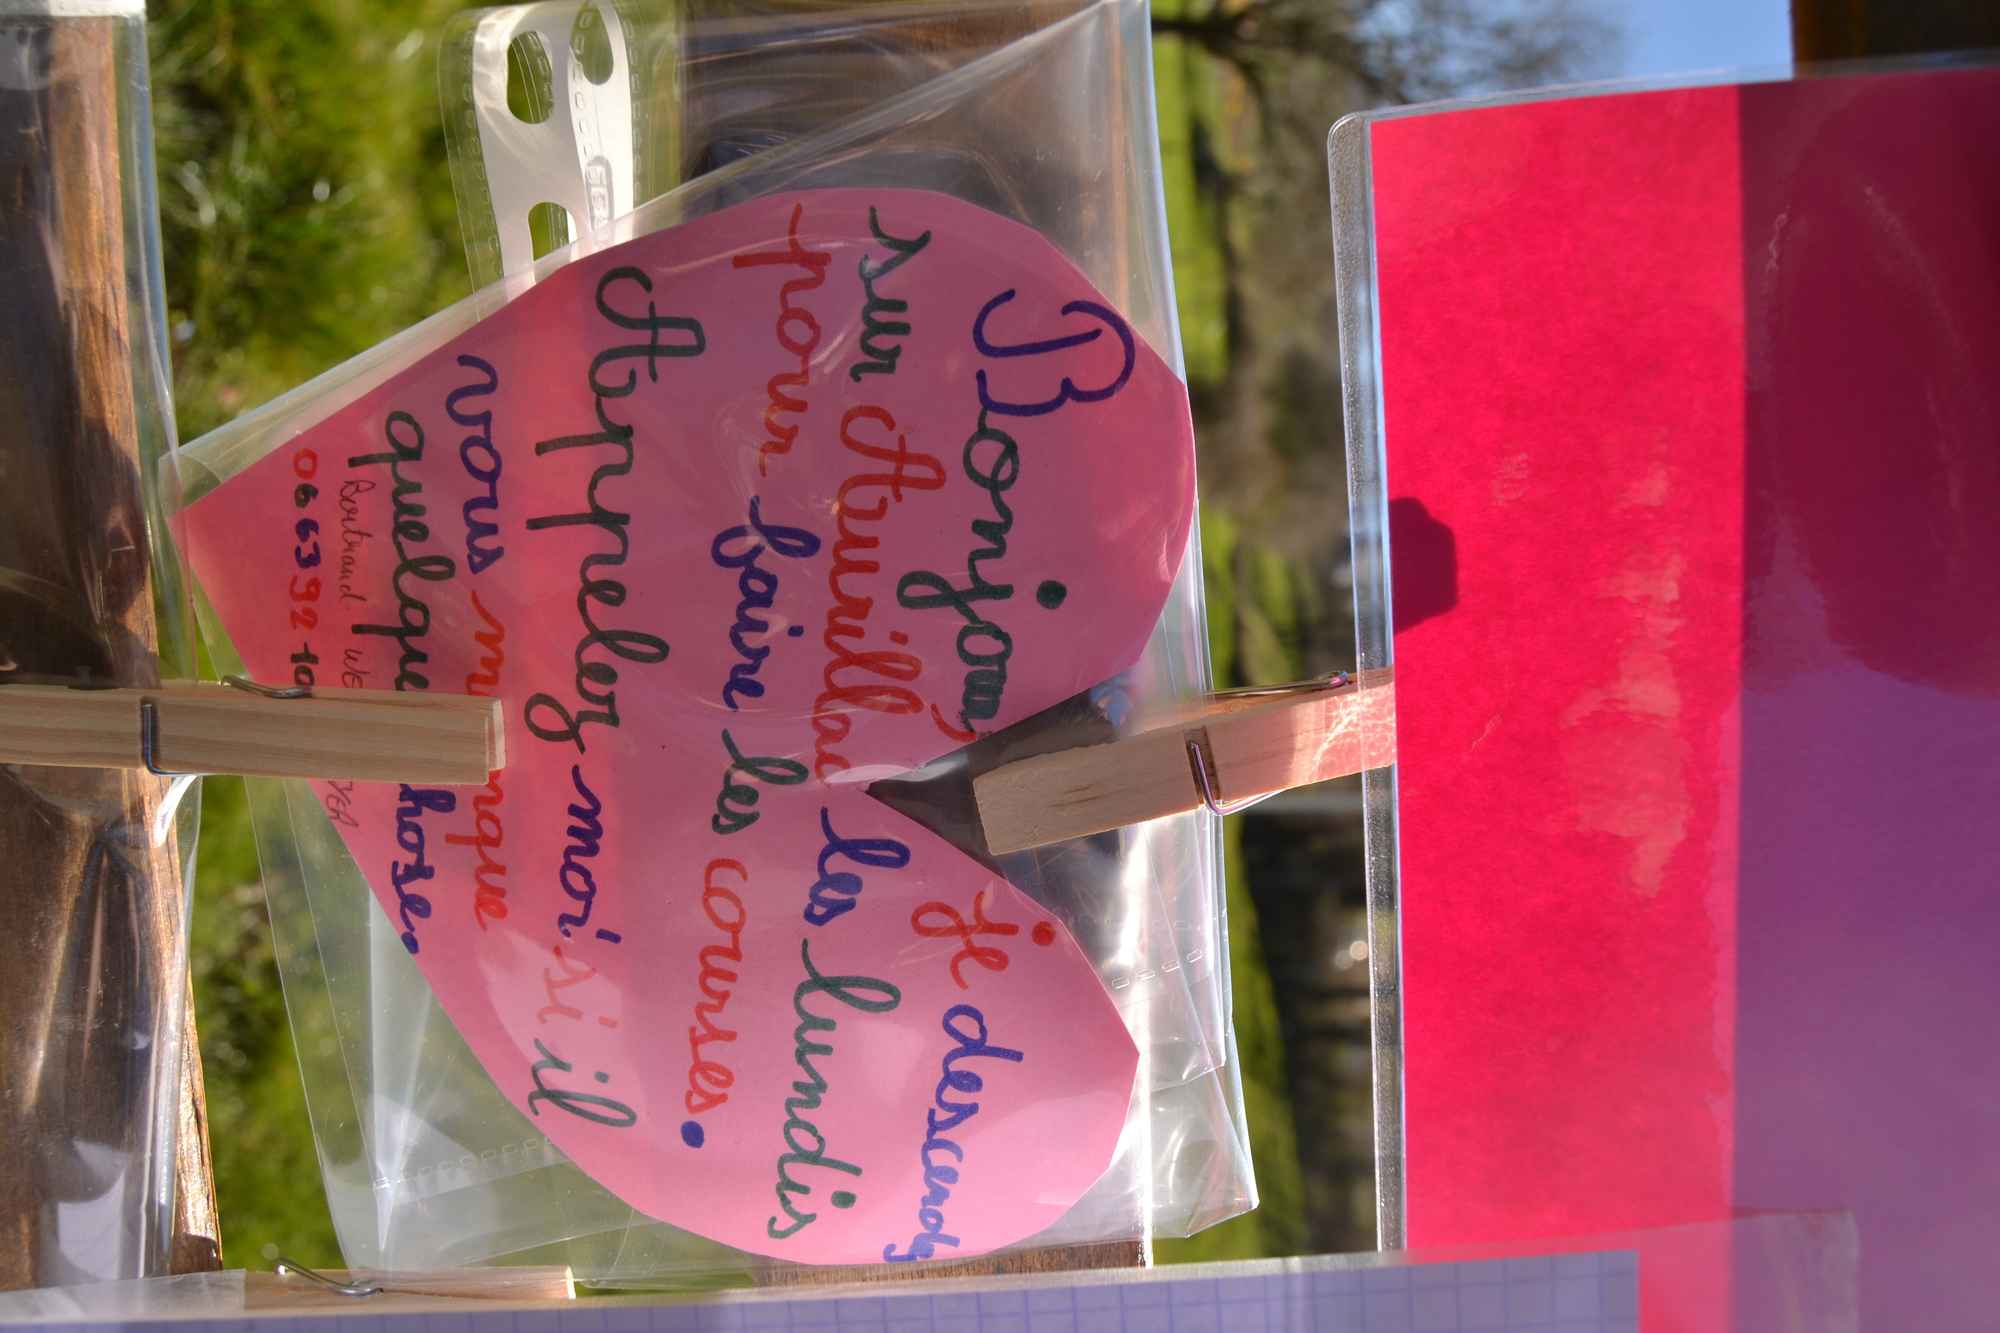 Bonjour, je descends
sur Aurillac les lundis
pour faire les courses.
Appelez moi si il
vous manque
quelque chose.
Bertrand
06 63 92 10